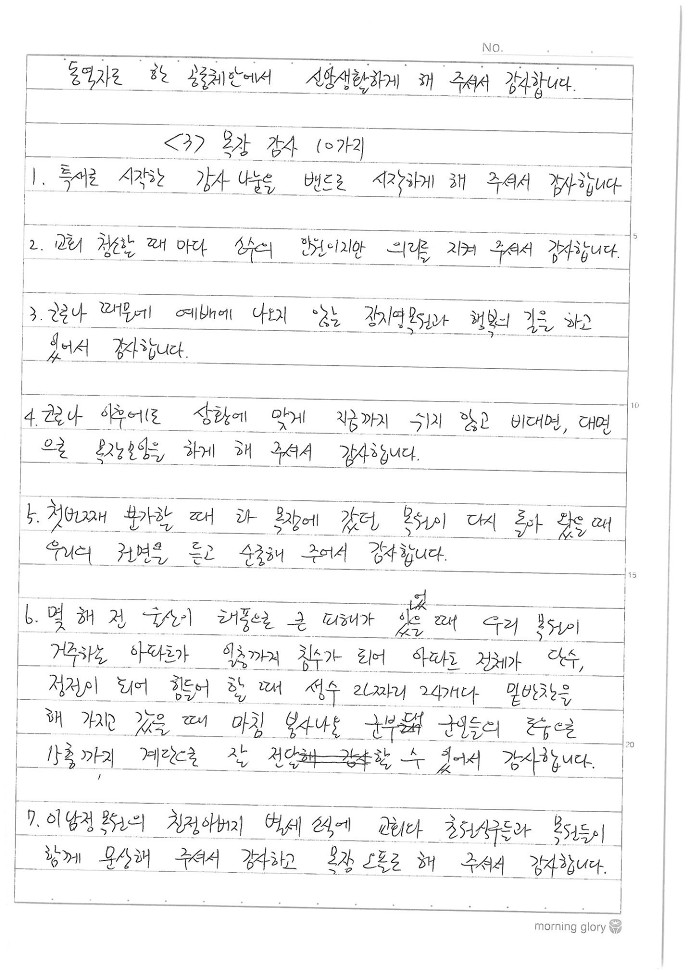 No.
동역자로 한 공동체안에서 신앙생활하게 해 주셔서 감사합니다.
<3> 목장 감사 10가지
1. 특새로 시작한 감사 나눔을 밴드로 시작하게 해 주셔서 감사합니다
2. 교회 청소할 때 마다 소수의 인원이지만 의리를 지켜 주셔서 감사합니다.
5
3. 코로나 때문에 예배에 나오지 않는 장지영목원과 행복의 길을 하고
있어서 감사합니다.
4. 코로나 이후에도 상황에 맞게 지금까지 쉬지 않고 비대면, 대면
10
으로 목장모임을 하게 해 주셔서 감사합니다.
5. 첫번째 분가할 때 타 목장에 갔던 목원이 다시 돌아 왔을때
우리의 권면을 듣고 순종해 주어서 감사합니다.
15
6. 몇 해 전 울산이 태풍으로 큰 피해가 있었을 때 우리 목원이
거주하는 아파트가 일층까지 침수가 되어 아파트 전체가 단수,
정전이 되어 힘들어 할 때 생수 2L짜리 24개다 밑반찬을
해 가지고 갔을 때 마침 봉사나온 군부대 군인들의 도움으로
20
15층까지 계단으로 잘 전달해 감사할 수 있어서 감사합니다.
7. 이남정목원의 친정아버지 별세 소식에 교회다 초원식구들과 목원들이
함께 문상해 주셔서 감사하고 목장 오픈도 해 주셔서 감사합니다.
morning glory